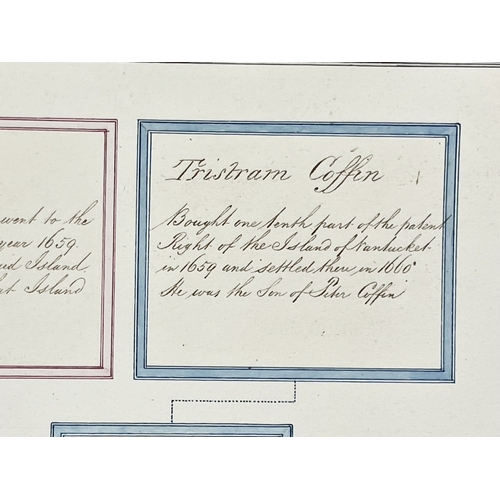 went to the
year 1659.
Island
Island
Tristram Coffin
Bought one tenth part of the patent
Right of the Island of Nantucket
in 1659 and settled there in 1660
He was the Son of Peter Coffin